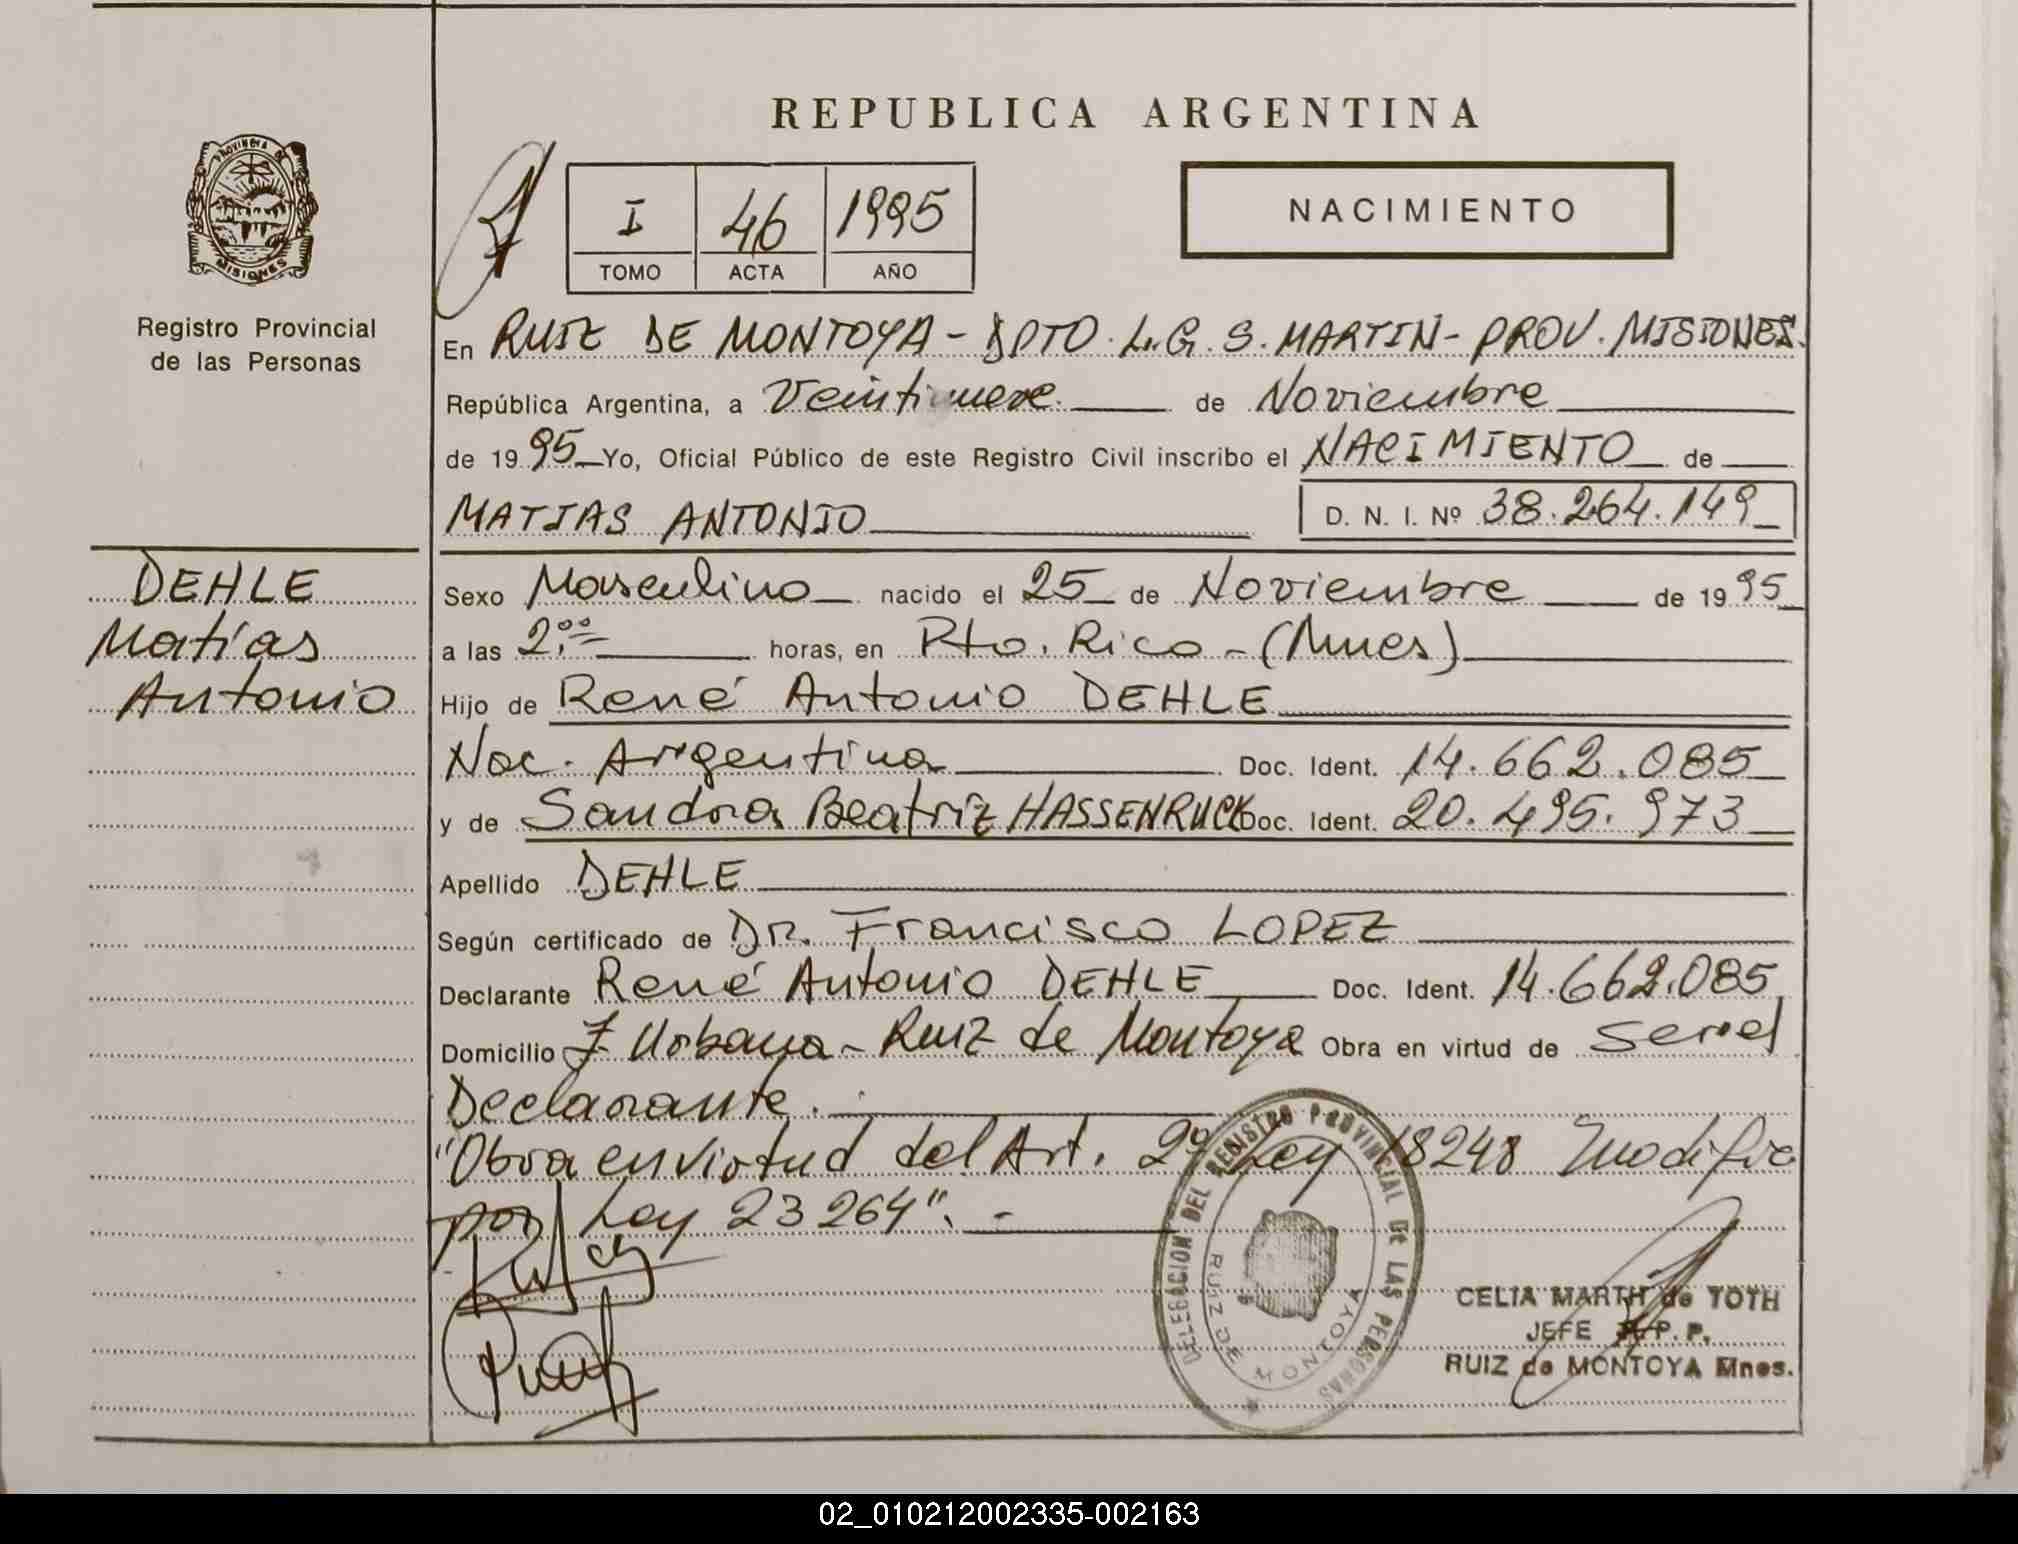 REPUBLICA ARGENTINA
PROVINCIA DE
MISIONES
Registro Provincial
de las Personas
I 46 1995
TOMO ACTA AÑO
NACIMIENTO
En RUIZ DE MONTOYA - DPTO. L.G.S. MARTIN - PROV. MISIONES.
República Argentina, a Veintinueve de Noviembre
de 1995 Yo, Oficial Público de este Registro Civil inscribo el NACIMIENTO de
MATIAS ANTONIO D. N. I. Nº 38.264.149
DEHLE
Matías
Antonio
Sexo Masculino nacido el 25 de Noviembre de 1995
a las 2.00 horas, en Pto. Rico - (Mnes)
Hijo de René Antonio DEHLE
Nac. Argentina Doc. Ident. 14.662.085
y de Sandra Beatriz HASSENRUCK Doc. Ident. 20.495.973
Apellido DEHLE
Según certificado de Dr. Francisco LOPEZ
Declarante René Antonio DEHLE Doc. Ident. 14.662.085
Domicilio Z Urbana - Ruiz de Montoya Obra en virtud de ser el
Declarante.
"Obra en virtud del Art. 2º Ley 18248 modific
por Ley 23264".-
DELEGACION DEL REGISTRO PROVINCIAL DE LAS PERSONAS
RUIZ DE MONTOYA
CELIA MARTH de TOTH
JEFE R.P.P.
RUIZ de MONTOYA Mnes.
02_010212002335-002163